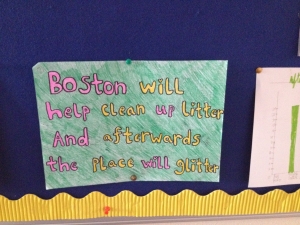 Boston will
help clean up litter
And afterwards
the place will glitter